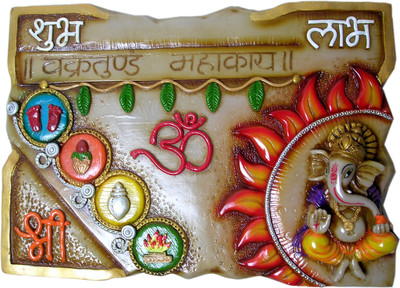 शुभ लाभ
॥ वक्रतुण्ड महाकाय ॥
ॐ
श्री